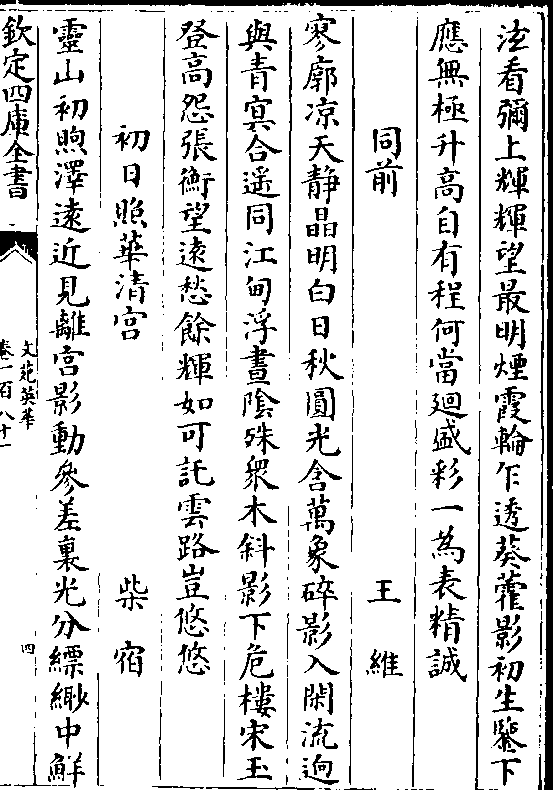 法看彌上輝輝望最明煙霞輪乍透葵藿影初生鑒下
應無極升高自有程何當廻盛彩一為表精誠
同前 王維
寥廓凉天静晶明白日秋圓光含萬象碎影入閑流迥
與青冥合遥同江甸浮晝隂殊衆木斜影下危樓宋玉
登高怨張衡望逺愁餘輝如可託雲路豈悠悠
初日照華清宫 柴宿
靈山初煦澤逺近見離宫影動參差裏光分縹緲中鮮
欽定四庫全書
文苑英華
卷一百八十一
四